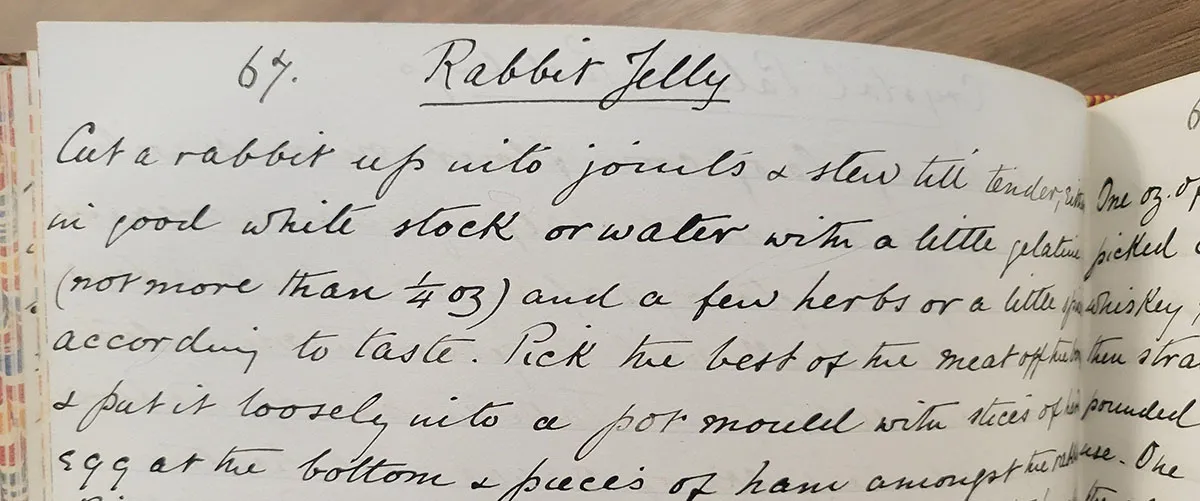 67. Rabbit Jelly
Cut a rabbit up into joints & stew till tender, either
in good white stock or water with a little gelatine
(not more than ¼ oz) and a few herbs or a little
according to taste. Pick the best of the meat off the
& put it loosely into a pot mould with slices of
egg at the bottom & pieces of ham amongst the
One oz. of
picked
whiskey
then stra
pounded
use. One